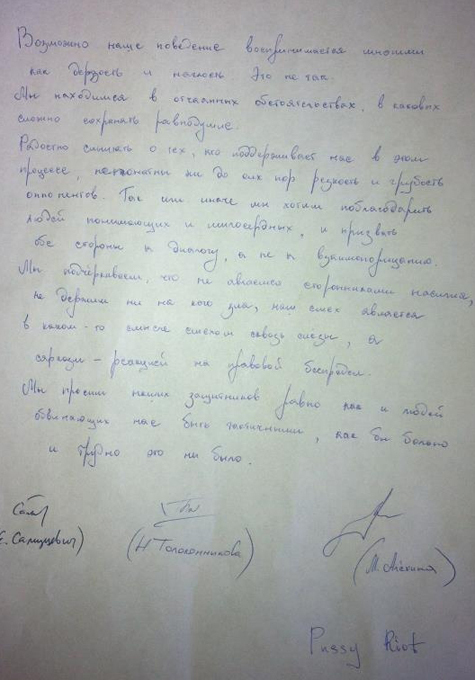 Возможно наше поведение воспринимается многими
как дерзость и наглость. Это не так.
Мы находимся в отчаянных обстоятельствах, в каковых
сложно сохранять равнодушие.
Радостно слышать о тех, кто поддерживает нас в этом
процессе, непонятны ни до сих пор резкость и грубость
оппонентов. Так или иначе мы хотим поблагодарить
людей понимающих и милосердных, и призвать
обе стороны к диалогу, а не к взаимопорицанию.
Мы подчеркиваем, что не являемся сторонниками насилия,
не держали ни на кого зла, наш смех является
в каком-то смысле смехом сквозь слезы, а
сарказм – реакцией на правовой беспредел.
Мы просим наших защитников равно как и людей
обвиняющих нас быть тактичными, как бы больно
и трудно это ни было.
(Е. Самуцевич) (Н Толоконникова) (М. Алехина)
Pussy Riot